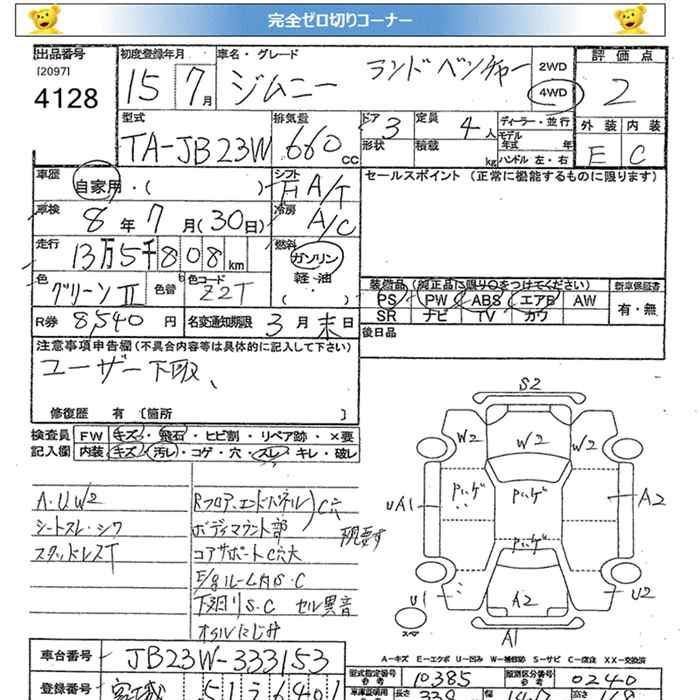 完全ゼロ切りコーナー
出品番号 初度登録年月 車名・グレード 評価点
[2097]
4128 15年 7月 ジムニー ランドベンチャー 2WD 4WD 2
型式 排気量 ドア 定員 ディーラー・並行 外装 内装
TA-JB23W 660cc 3 4人 モデル年式 年 E C
形状 積載 kg ハンドル 左・右
車歴 自家用・( ) シフト F A/T セールスポイント (正常に機能するものに限ります)
車検 8年 7月 (30日) 冷房 A/C
走行 13万5千808km 燃料 ガソリン 軽・油 ( )
色 グリーンⅡ 色替 色コード Z2T
装備品 (純正品に限り○をつけてください) 新車保証書
PS PW ABS エアB AW 有・無
SR ナビ TV カワ
R券 8,540円 名変通知期限 3月末日
後日品
注意事項申告欄(不具合内容等は具体的に記入して下さい)
ユーザー下取、
修復歴 有 [箇所 ]
検査員 FW キズ・飛石・ヒビ割・リペア跡・×要
記入欄 内装 キズ・汚レ・コゲ・穴・スレ・キレ・破レ
A・U W2
シートスレ・シワ
スタッドレスT
Rフロア、エンドパネル C穴
ボディマウント部 現要す
コアサポートC穴大
E/gルーム内S・C
下廻りS・C セル異音
オイルにじみ
S2
W2 W2 W2
UA1 ハゲ ハゲ A2
ハゲ
U1 A2 U2
スペア
A1
A-キズ E-エクボ U-凹み W-補修跡 S-サビ C-腐食 XX-交換済
車台番号 JB23W-333153
型式指定番号 参考 10385 類別区分番号 参考 0240
登録番号 宮城 51 6401
長さ 339 幅 147 高さ